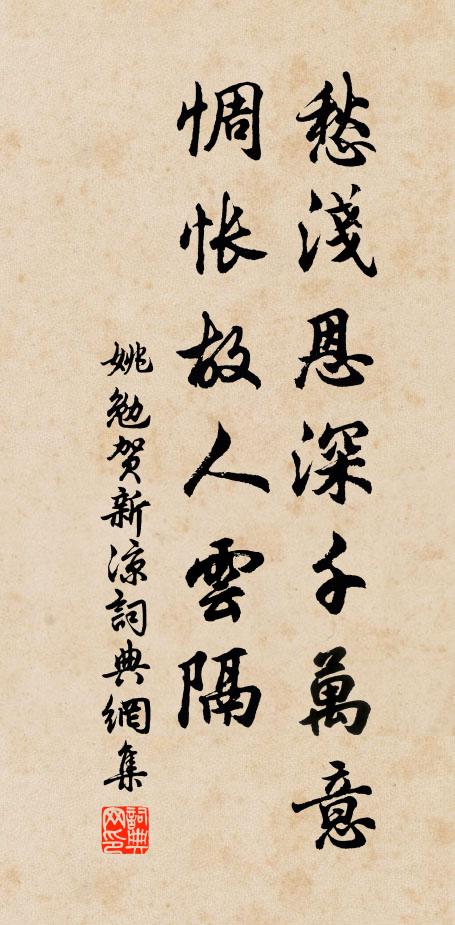 愁淺恩深千萬意
惆怅故人雲隔
姚勉贺新凉詞典網集
詞典网印